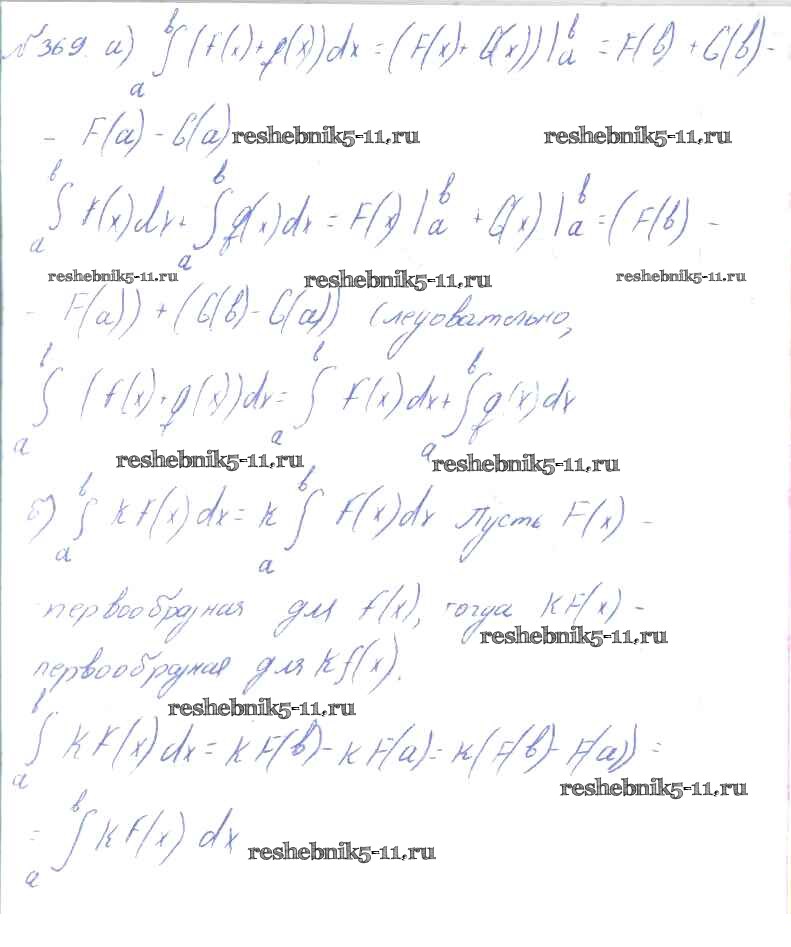 №369. а) ∫ₐᵇ (f(x)+g(x))dx = (F(x)+G(x))|ₐᵇ = F(b)+G(b)-
- F(a)-G(a) reshebnik5-11.ru reshebnik5-11.ru
∫ₐᵇ f(x)dx+∫ₐᵇ g(x)dx = F(x)|ₐᵇ +G(x)|ₐᵇ =(F(b) -
reshebnik5-11.ru reshebnik5-11.ru reshebnik5-11.ru
- F(a))+(G(b)-G(a)) Следовательно,
∫ₐᵇ (f(x)+g(x))dx= ∫ₐᵇ f(x)dx+∫ₐᵇ g(x)dx
reshebnik5-11.ru reshebnik5-11.ru
б) ∫ₐᵇ kf(x)dx= k ∫ₐᵇ f(x)dx Пусть F(x) -
первообразная для f(x), тогда kF(x) -
reshebnik5-11.ru
первообразная для kf(x).
reshebnik5-11.ru
∫ₐᵇ kf(x)dx= kF(b)-kF(a)= k(F(b)-F(a)) =
reshebnik5-11.ru
= ∫ₐᵇ kf(x) dx reshebnik5-11.ru